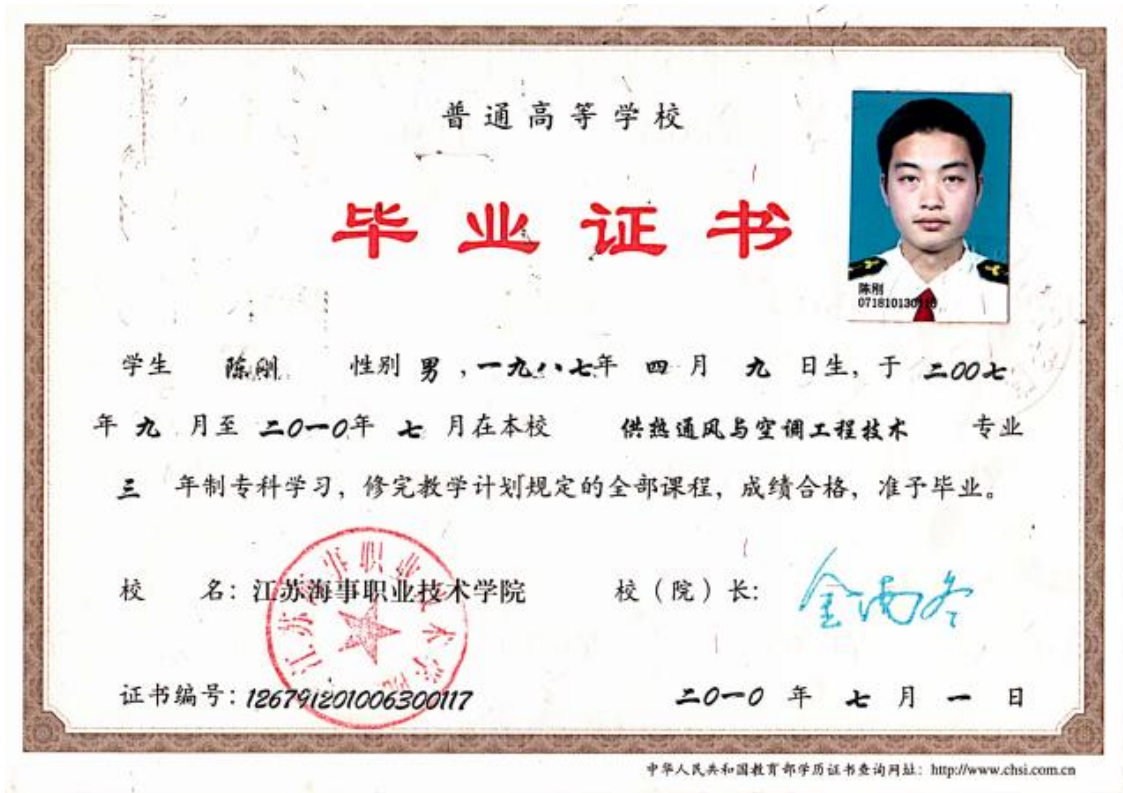 普通高等学校
毕业证书
陈刚
学生 陈刚 性别 男，一九八七年 四 月 九 日生，于 二00七
年 九 月至 二0一0年 七 月在本校 供热通风与空调工程技术 专业
三 年制专科学习，修完教学计划规定的全部课程，成绩合格，准予毕业。
江苏海事职业技术学院
校 名：江苏海事职业技术学院 校（院）长：
证书编号：126791201006300117 二0一0 年 七 月 一 日
中华人民共和国教育部学历证书查询网址：http://www.chsi.com.cn